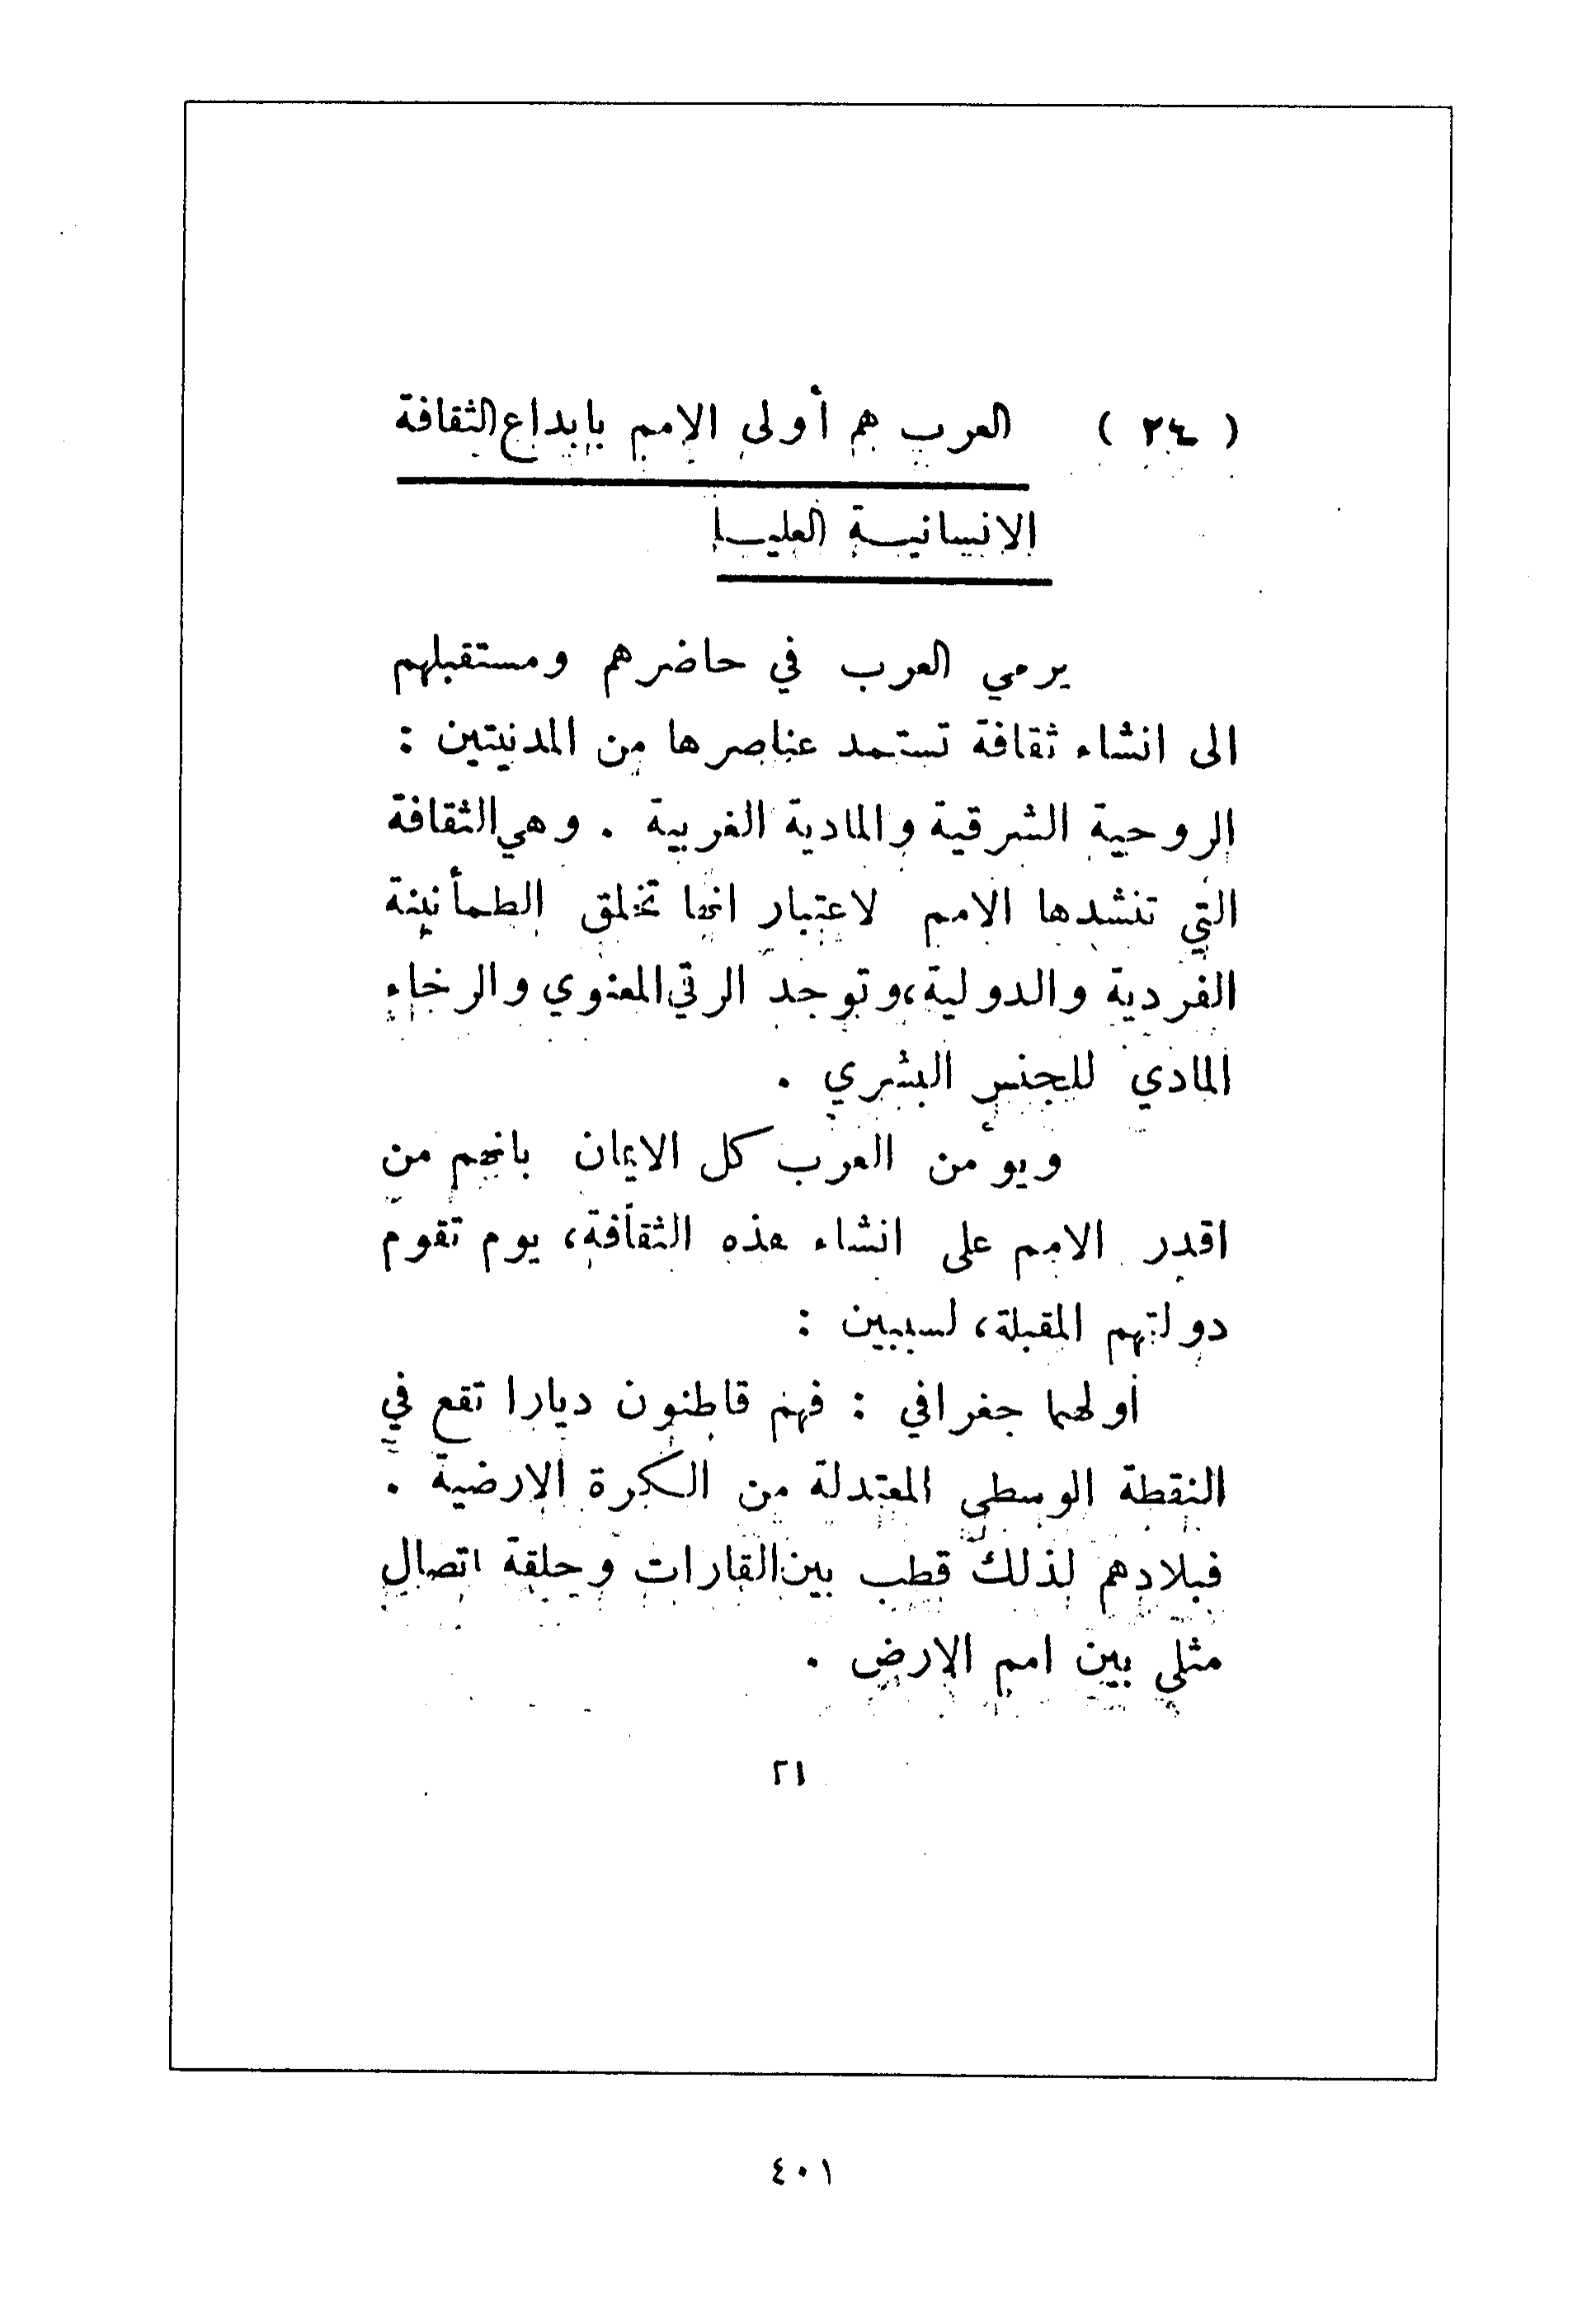 ( ٢٤ ) العرب هم أولى الامم بابداع الثقافة
الانسانية العليا
يرمي العرب في حاضرهم ومستقبلهم
الى انشاء ثقافة تستمد عناصرها من المدنيتين :
الروحية الشرقية والمادية الغربية . وهي الثقافة
التي تنشدها الامم لاعتبار انها تخلق الطمأنينة
الفردية والدولية، وتوجد الرقي المعنوي والرخاء
المادي للجنس البشري .
ويؤمن العرب كل الايمان بانهم من
اقدر الامم على انشاء هذه الثقافة، يوم تقوم
دولتهم المقبلة، لسببين :
أولهما جغرافي : فهم قاطنون ديارا تقع في
النقطة الوسطى المعتدلة من الكرة الارضية .
فبلادهم لذلك قطب بين القارات وحلقة اتصال
مثلى بين امم الارض .
٢١
٤٠١